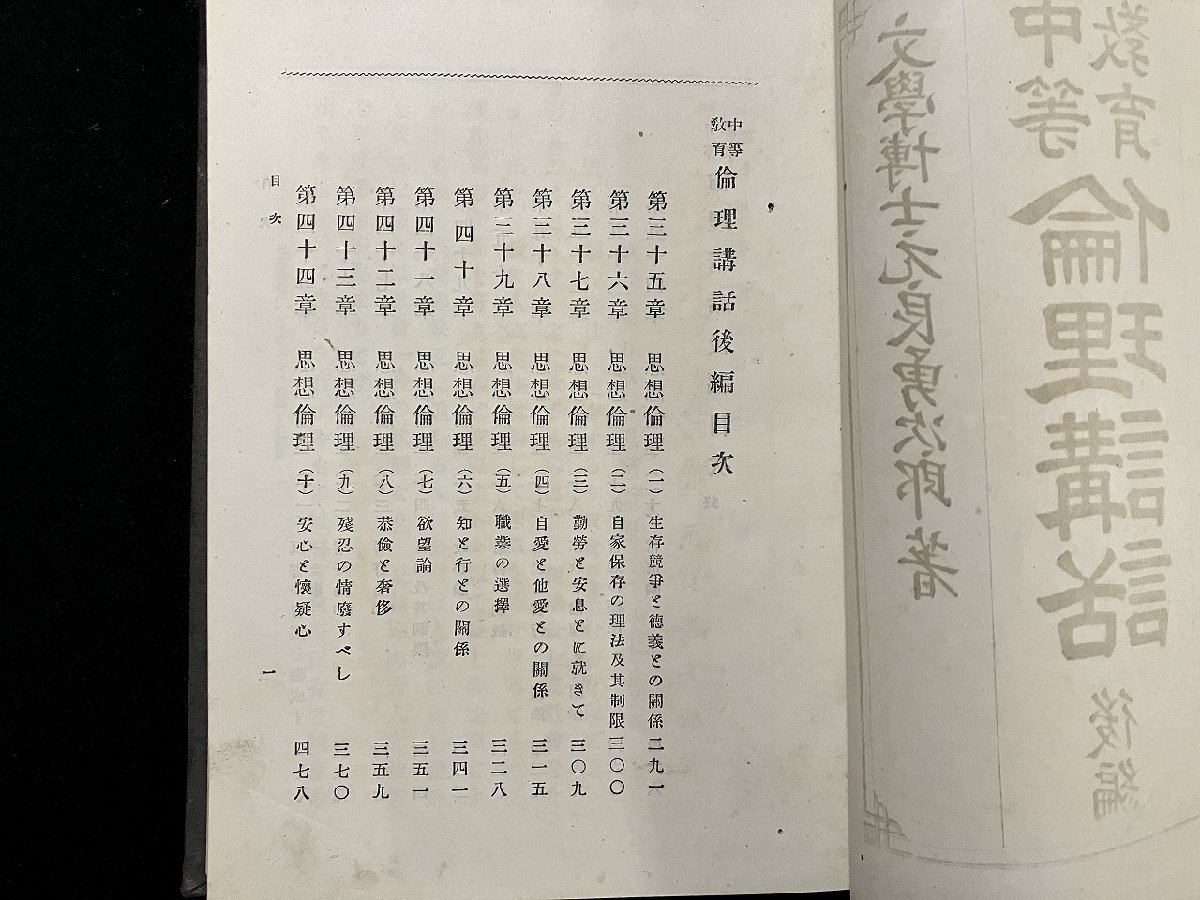 中等教育倫理講話後編
文學博士元良勇次郎著
中等教育倫理講話後編目次
第三十五章 思想倫理(一) 生存競爭と德義との關係 二九一
第三十六章 思想倫理(二) 自家保存の理法及其制限 三〇〇
第三十七章 思想倫理(三) 勤勞と安息とに就きて 三〇九
第三十八章 思想倫理(四) 自愛と他愛との關係 三一五
第三十九章 思想倫理(五) 職業の選擇 三二八
第四十章 思想倫理(六) 知と行との關係 三四一
第四十一章 思想倫理(七) 欲望論 三五一
第四十二章 思想倫理(八) 恭儉と奢侈 三五九
第四十三章 思想倫理(九) 殘忍の情廢すべし 三七〇
第四十四章 思想倫理(十) 安心と懷疑心 四七八
目次 一